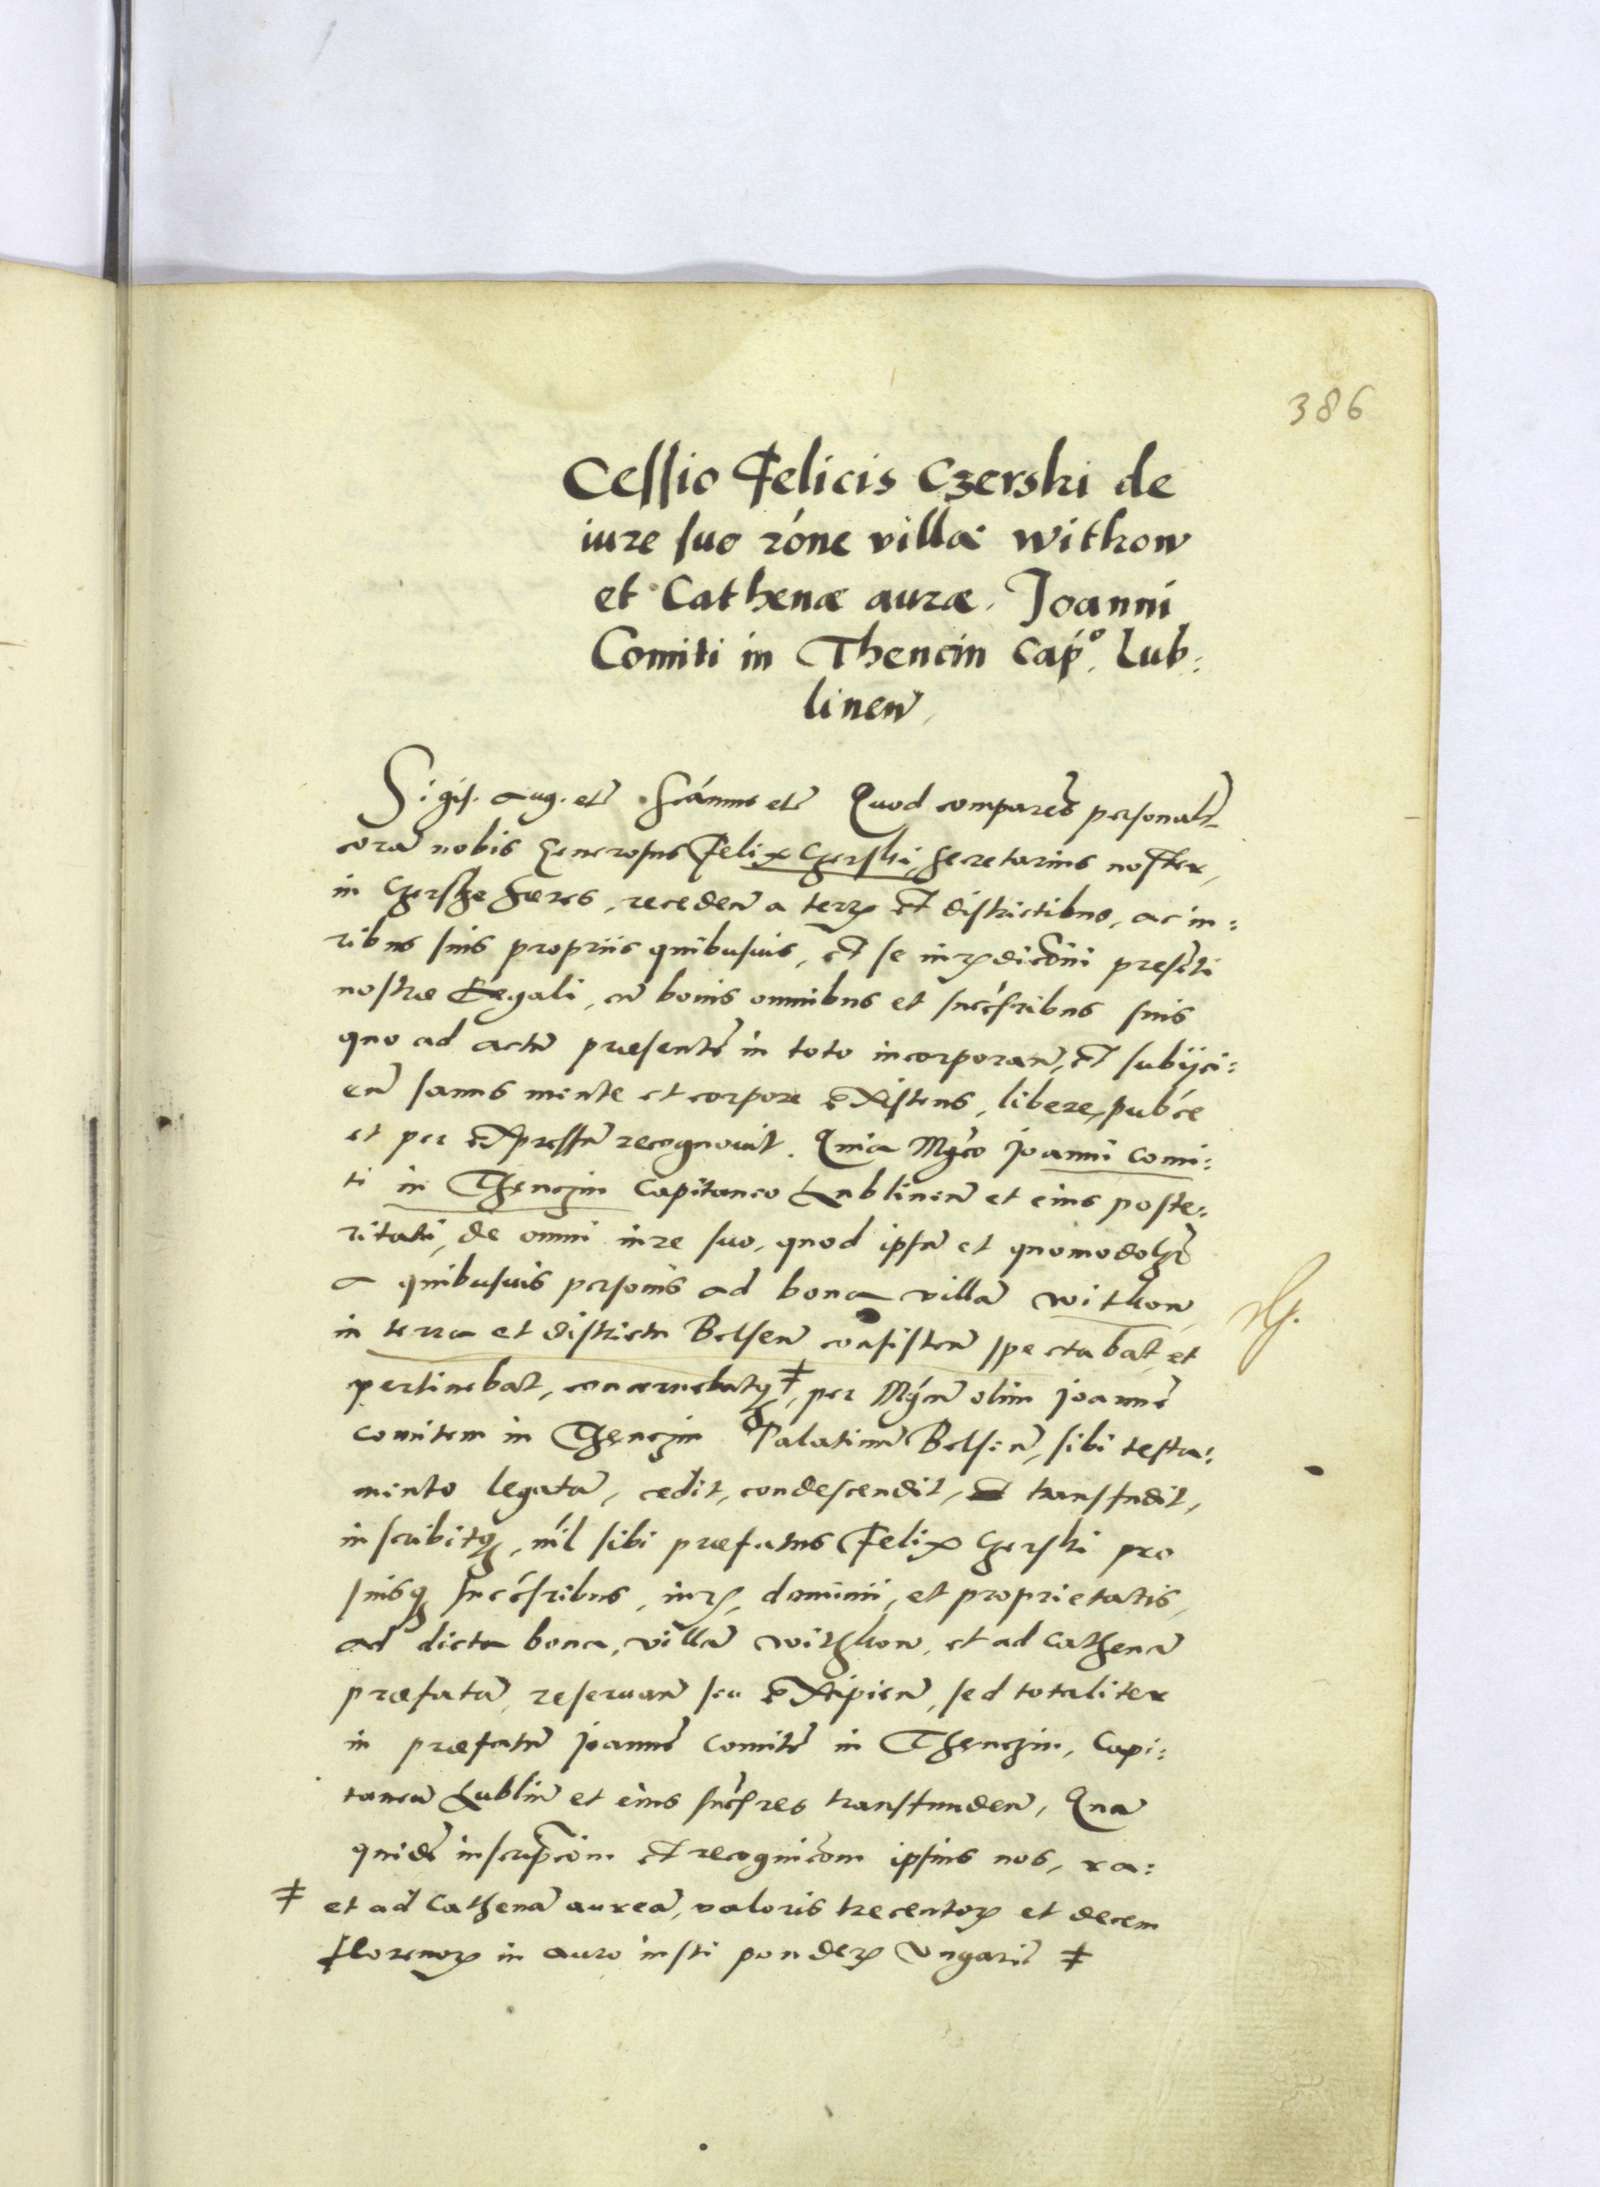 386
Cessio Felicis Czerski de
iure suo róne villæ withow
et Cathenæ auræ Joanni
Comiti in Thencin Cap°. Lub:
linen
Sigis. Aug. etc̃ Scámus etc̃ Quod comparẽs personalr̃
corã nobis Generosus Felix Czerski, Secretarius noster,
in Czersze heres, recedeñ a terrꝫ et districtibus, ac iu:
ribus suis propriis quibusuis, et se iurꝫdicõni presẽti
nostræ Regali, cũ bonis omnibus et succ̃sribus suis
quo ad actũ præsentẽ in toto incorporañ, et subijci:
eñ sanus mente et corpore existens, libere, pubc̃e
et per expressũ recognouit. Quia Mgc̃o Joanni Comi:
ti in Thenczin Capitaneo Lublineñ et eius poste:
ritati, de omni iure suo, quod ipsũ et quomodolꝫ
a quibusuis personis ad bona villã withow
in terra et districtu Belseñ consisteñ spectabat et
pertinebat, concernebatqꝫ ǂ, per Mgc̃m olim Joannẽ
comitem in Thenczin Palatinũ Belseñ, sibi testa:
mento legatã, cedit, condescendit, transfudit,
inscribitqꝫ, níl sibi præfatus Felix Czerski pro
suisqꝫ succ̃sribus, iurꝫ, dominii, et proprietatis,
ad dicta bona, villã withkow, et ad Cathenã
præfatã, reseruañ seu excipieñ, sed totaliter
in præfatũ Joannẽ Comitẽ in Thenczin, Capi:
taneũ Lubliñ et eius succ̃sres transfundeñ, Quã
quidẽ inscripc̃om et recognic̃om ipsius nos, ra:
ǂ et ad Cathenã aureã, valoris trecentorꝫ et decem
florenorꝫ in auro iusti ponderꝫ Vngariĉ ǂ